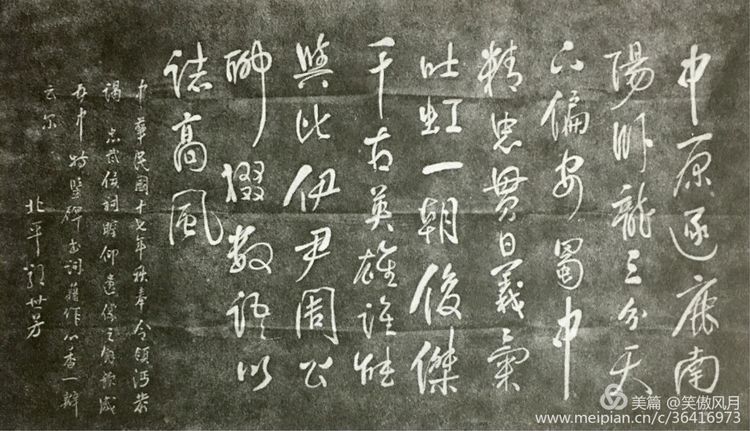 中原逐鹿南
陽卧龍三分天
下偏安蜀中
精忠貫日義氣
吐虹一朝俊傑
千古英雄誰能
與比伊尹周公
聊綴數語以
誌高風
中華民國十七年秋奉令領沔恭
謁忠武侯祠瞻仰遺像之餘欽感
中特碑書詞藉作心香一瓣
云尔
北平
美篇 @笑傲风月
www.meipian.cn/c/36416973